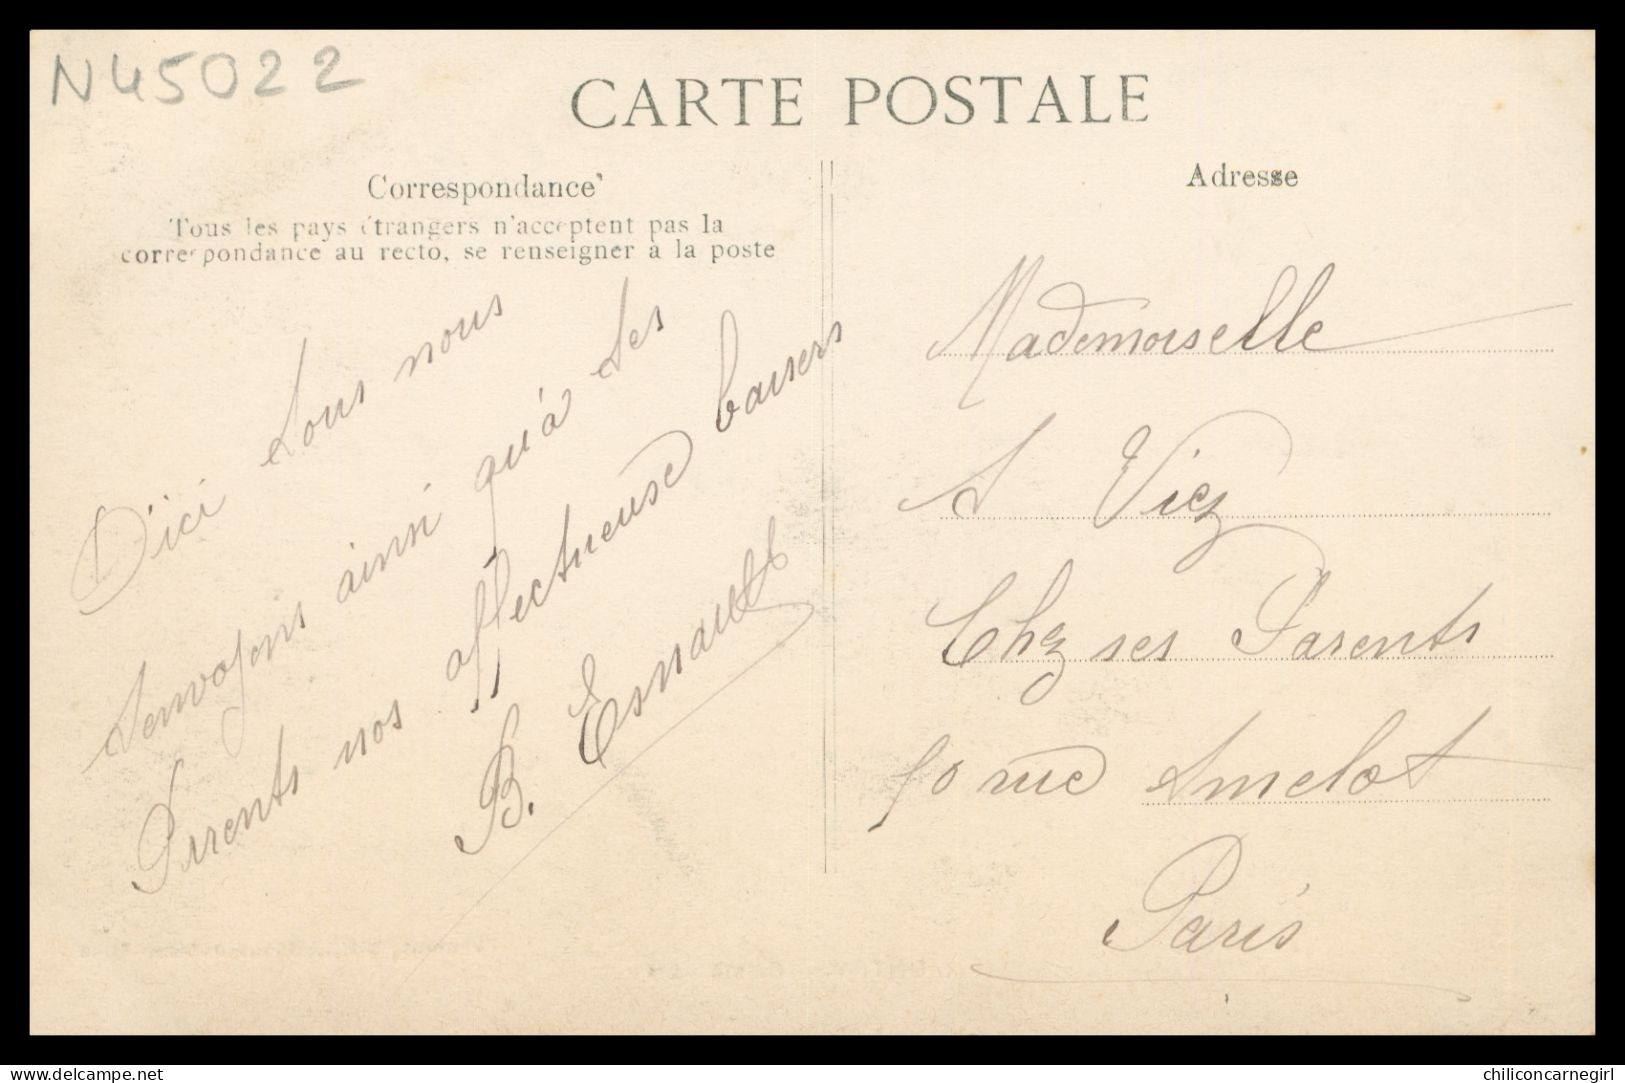 N45022
CARTE POSTALE
Correspondance
Tous les pays étrangers n'acceptent pas la
correspondance au recto, se renseigner à la poste
Adresse
D'ici tous nous
t'envoyons ainsi qu'à tes
Parents nos affectueuse baisers
B. Esnault
Mademoiselle
A Viez
Chez ses Parents
rue Amelot
Paris
www.delcampe.net
chiliconcarnegirl